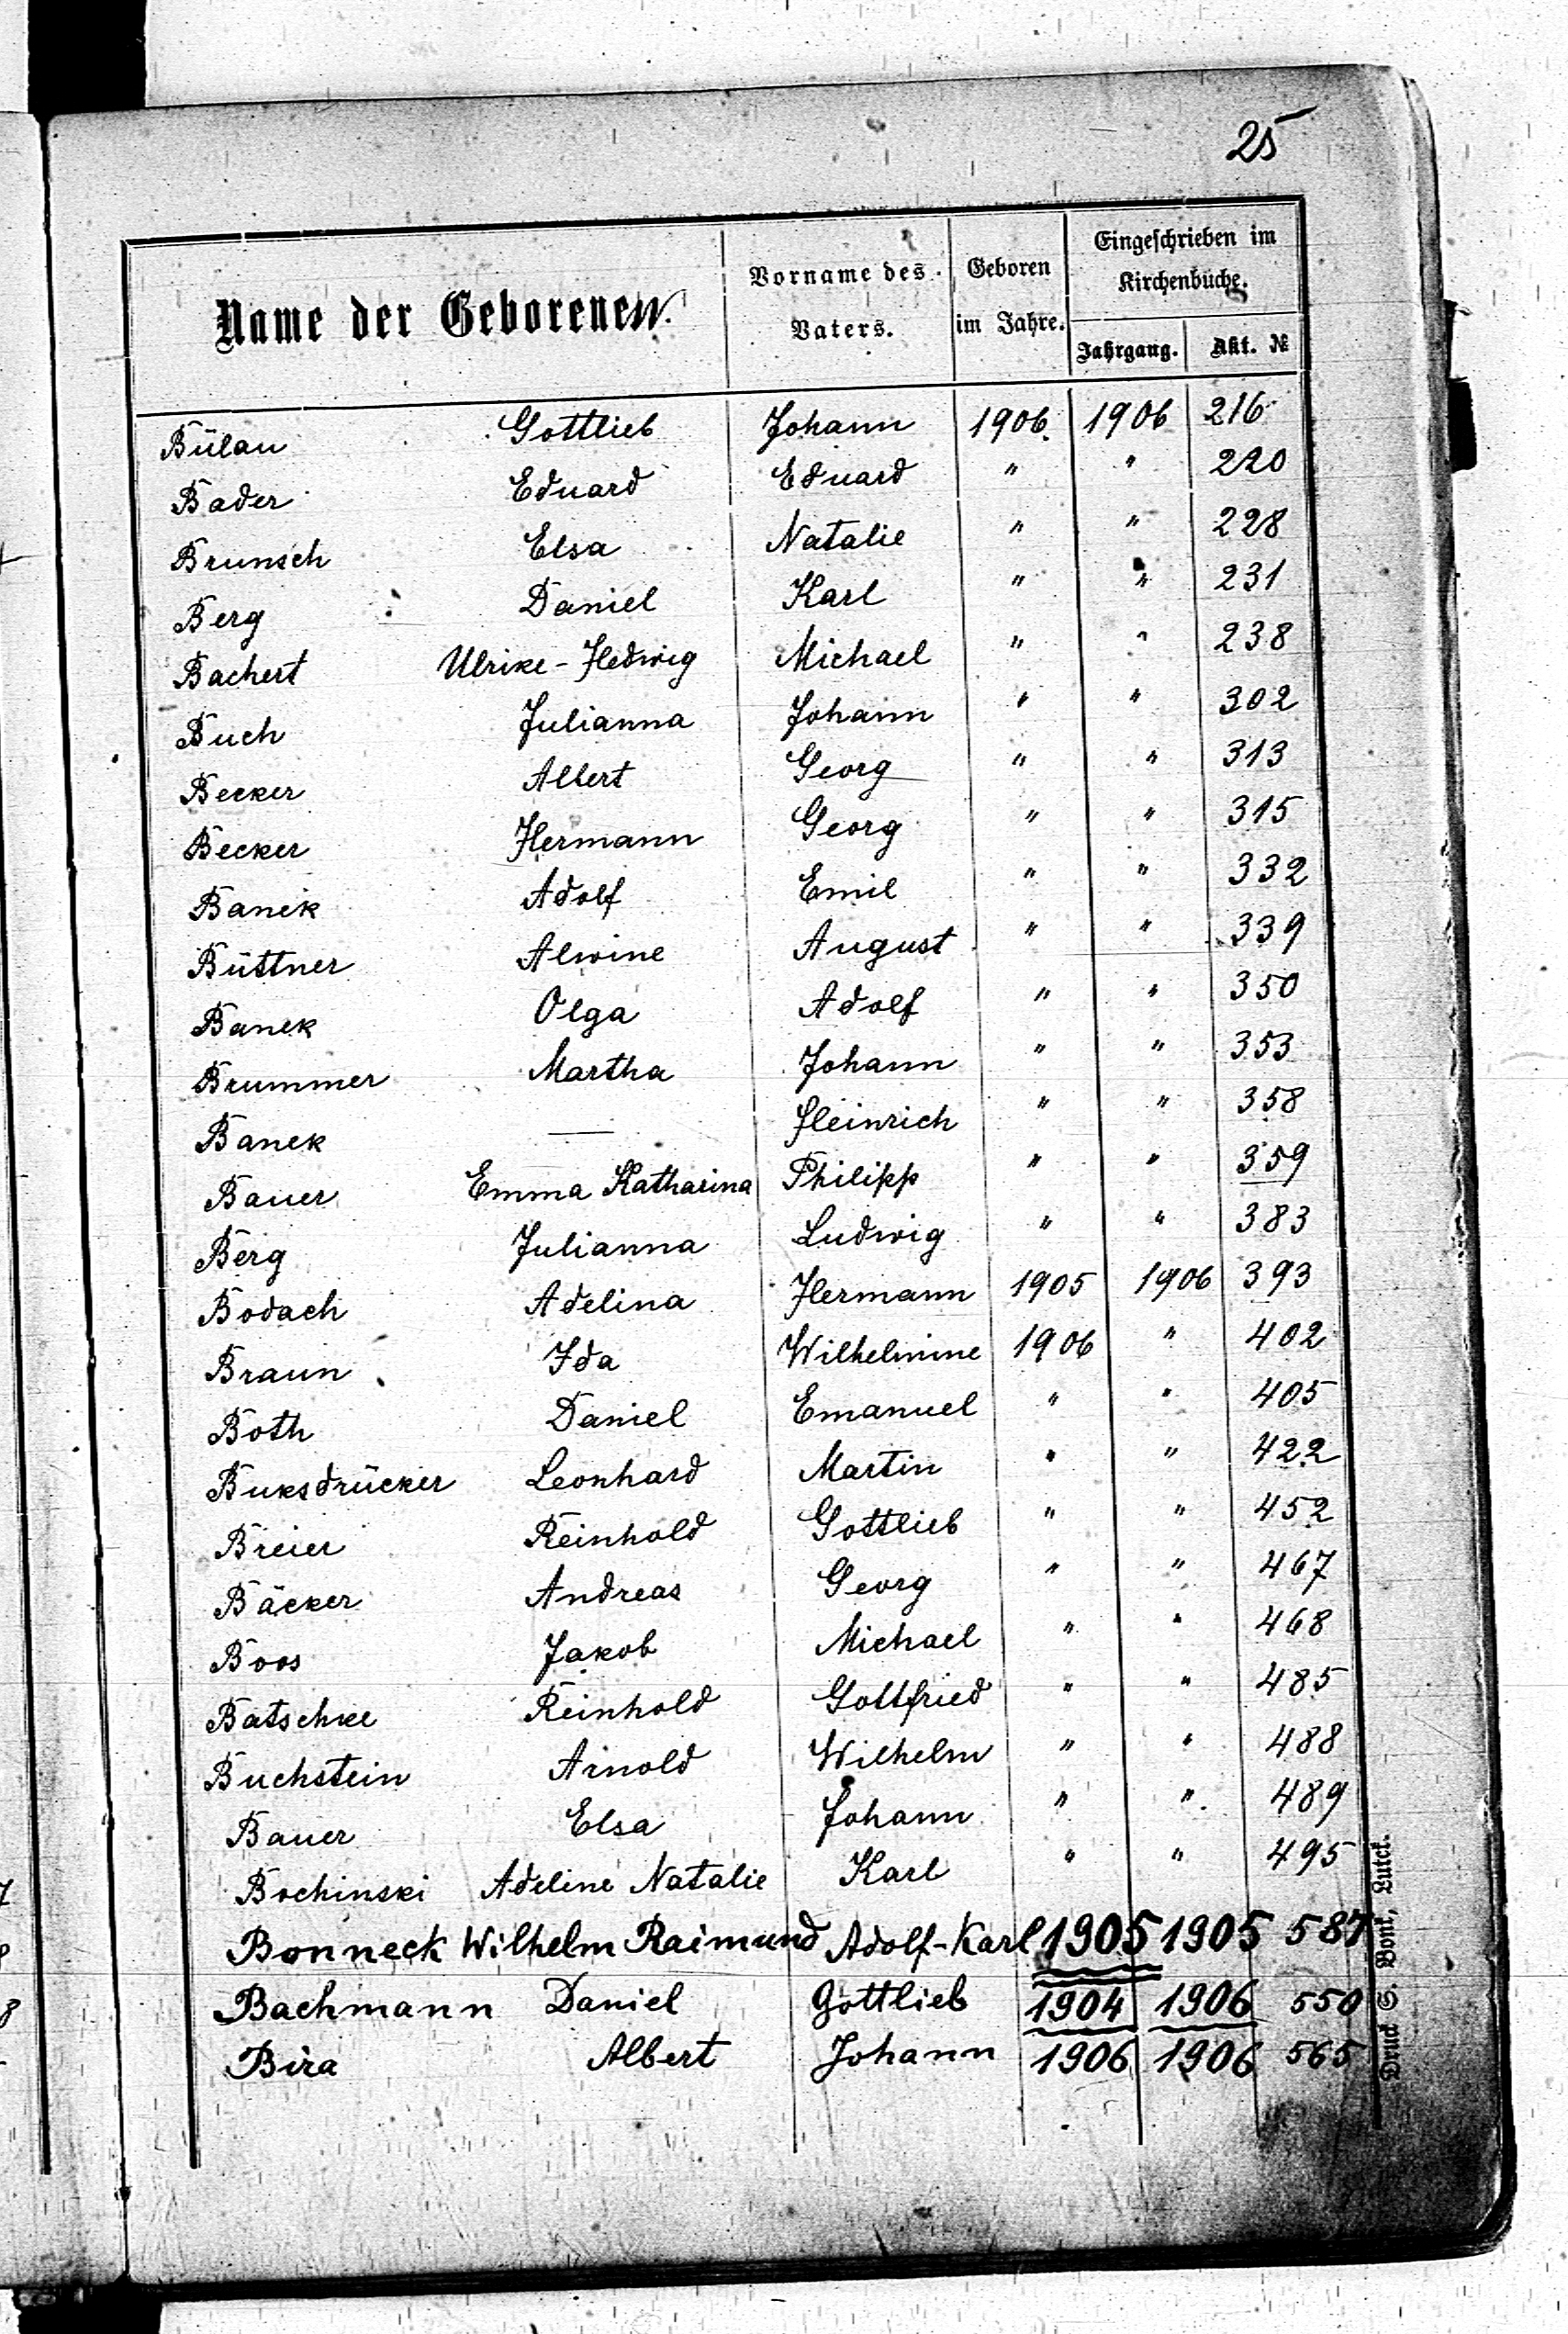 25
Name der Geborenen.
Vorname des Vaters.
Geboren im Jahre.
Eingeschrieben im Kirchenbuche.
Jahrgang.
Akt. №
Bülau Gottlieb Johann 1906. 1906 216
Bader Eduard Eduard " " 220
Brunsch Elsa Natalie " " 228
Berg Daniel Karl " " 231
Bachert Ulrike-Hedwig Michael " " 238
Buch Julianna Johann " " 302
Becker Albert Georg " " 313
Becker Hermann Georg " " 315
Banek Adolf Emil " " 332
Büttner Alwine August " " 339
Banek Olga Adolf " " 350
Brummer Martha Johann " " 353
Banek — Heinrich " " 358
Bauer Emma Katharina Philipp " " 359
Berg Julianna Ludwig " " 383
Bodach Adelina Hermann 1905 1906 393
Braun Ida Wilhelmine 1906 " 402
Both Daniel Emanuel " " 405
Buksdrücker Leonhard Martin " " 422
Breier Reinhold Gottlieb " " 452
Bäcker Andreas Georg " " 467
Boos Jakob Michael " " 468
Batschke Reinhold Gottfried " " 485
Buchstein Arnold Wilhelm " " 488
Bauer Elsa Johann " " 489
Bochinski Adeline Natalie Karl " " 495
Bonneck Wilhelm Raimund Adolf-Karl 1905 1905 587
Bachmann Daniel Gottlieb 1904 1906 550
Bira Albert Johann 1906 1906 565
Druck S. Bonk, Lutck.